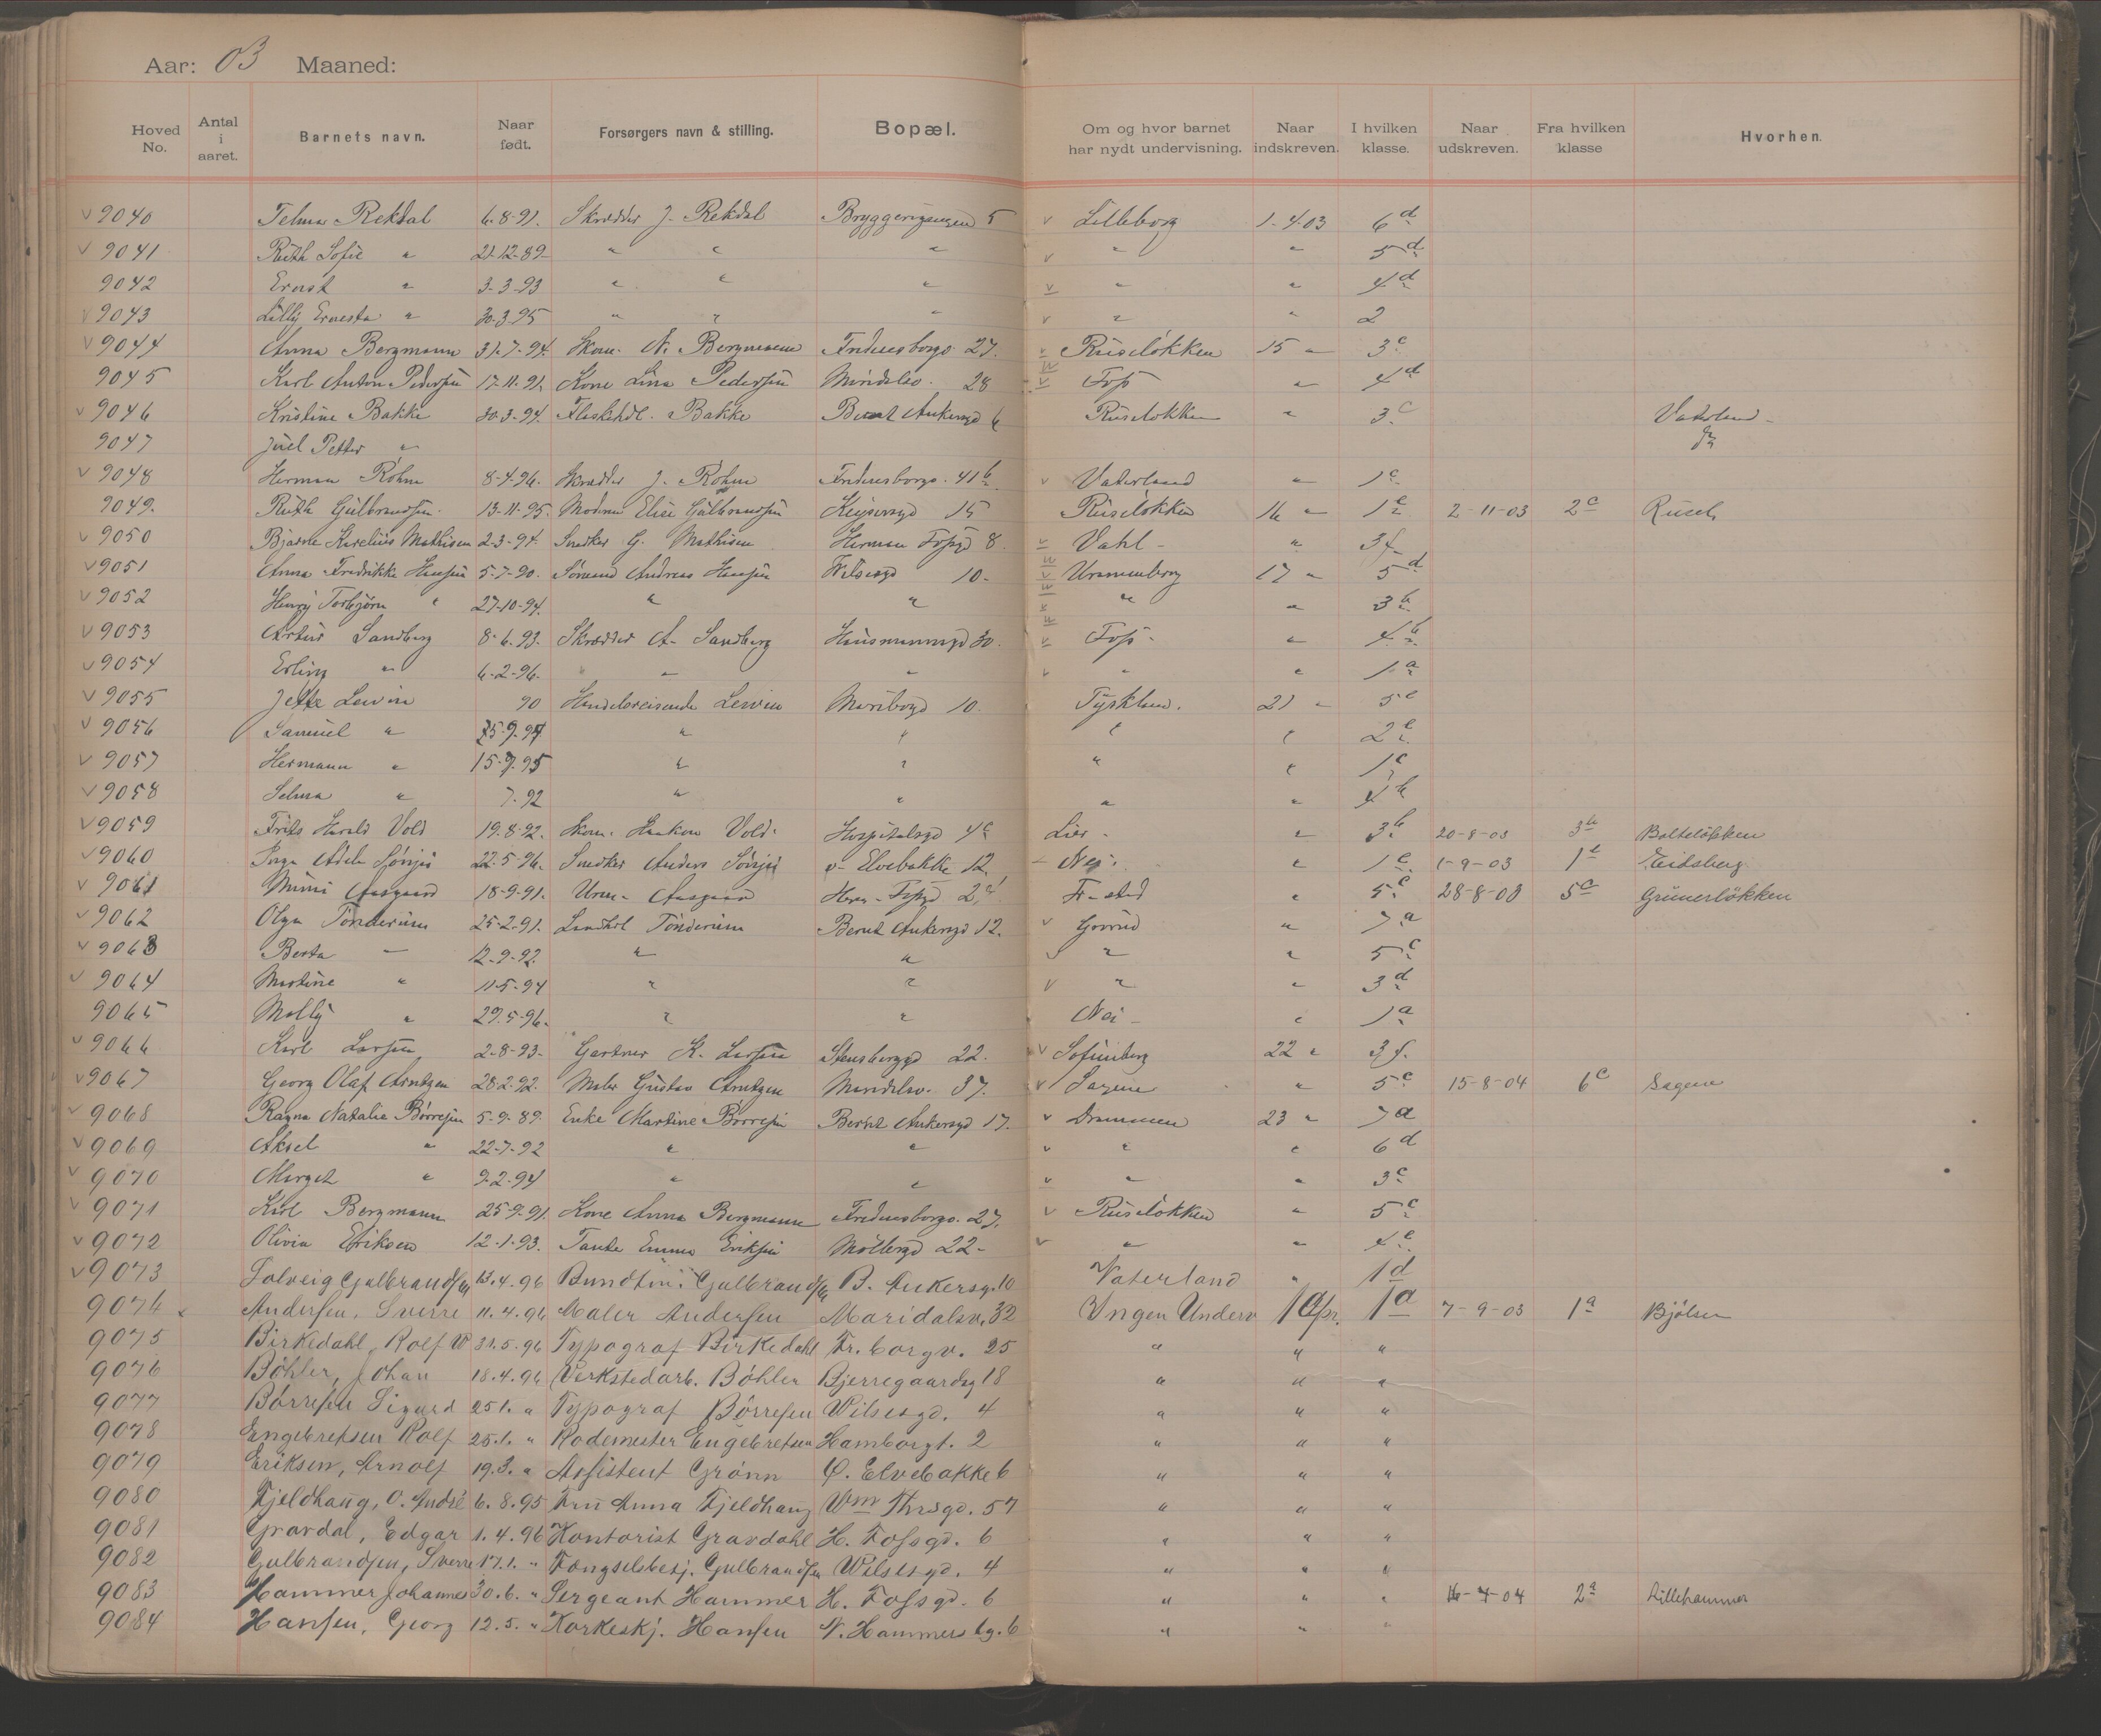 Aar: 03 Maaned:
Hoved No. Antal i aaret. Barnets navn. Naar født. Forsørgers navn & stilling. Bopæl. Om og hvor barnet har nydt undervisning. Naar indskreven. I hvilken klasse. Naar udskreven. Fra hvilken klasse Hvorhen.
v 9040 Telma Rekdal 6.8-91. Skrædder J. Rekdal Bryggerigangen 5 v Lilleborg 1-4.03 6d
v 9041 Ruth Sofie " 21-12-89- " " " v " " 5d
9042 Ernst " 3-3-93 " " " v " " 4d
v 9043 Lilly Ernesta " 30.3.95 " " " v " " 2
v 9044 Anna Bergmann 31.-7.-94. Skom. N. Bergmann Fredensborgv. 27. v Ruseløkken 15 " 3c
9045 Karl Anton Pedersen 17-11.91. Kone Lina Pedersen Maridalsv. 28 v Foss " 4d
v 9046 Kristine Bakke 30-3-94. Flaskehdl. Bakke Bernt Ankersgd 6 Ruseløkken " 3c Vaterland -
9047 Juel Petter "
v 9048 Herman Röhm 8-4.96. Skrædder J. Röhm Fredensborgv. 41b v Vaterland " 1c
9049. Ruth Gulbrandsen. 13-11-95. Modren Elise Gulbrandsen Keysersgd 15 Ruseløkken 16 " 1c 2-11-03 2c Rusel.
v 9050 Bjarne Karelius Mathisen 2-3-94. Snedker G. Mathisen Herman Fossgd 8. v Vahl - " 3f
v 9051 Anna Fredrikke Hansen 5-7-90. Sømand Andreas Hansen Wilsesgd 10- v Uranienborg 17 " 5d
v 9052 Henry Torbjørn " 27-10-94. " " v " " 3b
v 9053 Artur Sandberg 8-6.93. Skrædder A. Sandberg Hausmannsgd 30. v Foss - " 4b
v 9054 Erling " 6-2-96. " " " v " " 1a
v 9055 Jette Lewin 90 Handelsreisende Lewin Maribogd 10. Tyskland. 21 " 5c
v 9056 Samuel " 25-9-94 " " " " 2c
v 9057 Hermann " 15-9.95 " " " " 1c
v 9058 Selma " 7-92 " " " " 4b
v 9059 Frits Harald Vold 19.8-92. Skom. Haakon Vold. Hospitalsgd 4c Lier - " 3b 20-8-03 3b Bolteløkken
v 9060 Inga Adele 22.5-96. Snedker Anders v- Elvebakke 12. - Nei. " 1c 1-9-03 1c Eidsberg
v 9061 Mimi Aasgaard 18-9-91. Urm. Aasgaard Herm. Fossgd 2 Fr-stad " 5c 28-8-03 5c Grünerløkken
v 9062 Olga Tønderum 25-2.91. Landhdl Tønderum Bernt Ankersgd 12. v Grorud " 7a
v 9063 Berta — 12-9-92. " " v " " 5c
v 9064 Martine " 11-5-94 " " v " " 3d
9065 Molly " 29.5-96. " " Nei - " 1a
v 9066 Karl Larsen 2-8-93- Gartner K. Larsen Stensberggd 22. v Sofienberg 22 " 3f.
v 9067 Georg Olaf Arntzen 28-2.92. Maler Gustav Arntzen Maridalsv. 37. v Sagene " 5c 15-8-04 6c Sagene
v 9068 Ragna Natalia Börresen 5-9-89. Enke Martine Börresen Bernt Ankersgd 17. v Drammen 23 " 7a
v 9069 Aksel " 22-7-92 " " v " " 6d
v 9070 Margit " 9-2-94 " " v " " 3c
v 9071 Karl Bergmann 25-9-91. Kone Anna Bergmann Fredensborgv. 27. v Ruseløkken " 5c
v 9072 Olivia Eriksen 12-1-93. Tante Emma Eriksen Møllergd 22- v " " 4c
v 9073 Solveig Gulbrandsen 13.4-96 Bundtm. Gulbrandsen B. Ankersg. 10 Vaterland " 1d
9074 x Andersen, Sverre 11.4.96 Maler Andersen Maridalsv. 32 Ingen Underv 1 Apr. 1a 7-9-03 1a Bjølsen
9075 Birkedahl, Rolf W 31.5.96 Typograf Birkedahl Fr.borgv. 25 " " "
9076 Böhler, Johan 18.4.96 Verkstedarb. Böhler Bjerregaardsg 18 " " "
9077 Börresen Sigurd 25.1. " Typograf Börresen Wilsesgd. 4 " " "
9078 Engebretsen Rolf 25.1. " Rodemester Engebretsen Hamborgt. 2 " " "
9079 Eriksen, Arnolf 19.3. " Assistent Grönn Ø. Elvebakke 6 " " "
9080 Fjeldhaug, O. André 6.8.95 Fru Anna Fjeldhaug Wm Thrsgd. 57 " " "
9081 Gravdal, Edgar 1.4.96 Kontorist Gravdahl H. Fossgd. 6 " " "
9082 Gulbrandsen, Sverre 17.1. " Fængselsbetj. Gulbrandsen Wilsesgd. 4 " " "
9083 Hammer Johannes 30.6. " Sergeant Hammer H. Fossgd. 6 " " " 16-4-04 2a Lillehammer
9084 Hansen, Georg 12.5. " Korkeskj. Hansen N. Hammersbg. 6 " " "